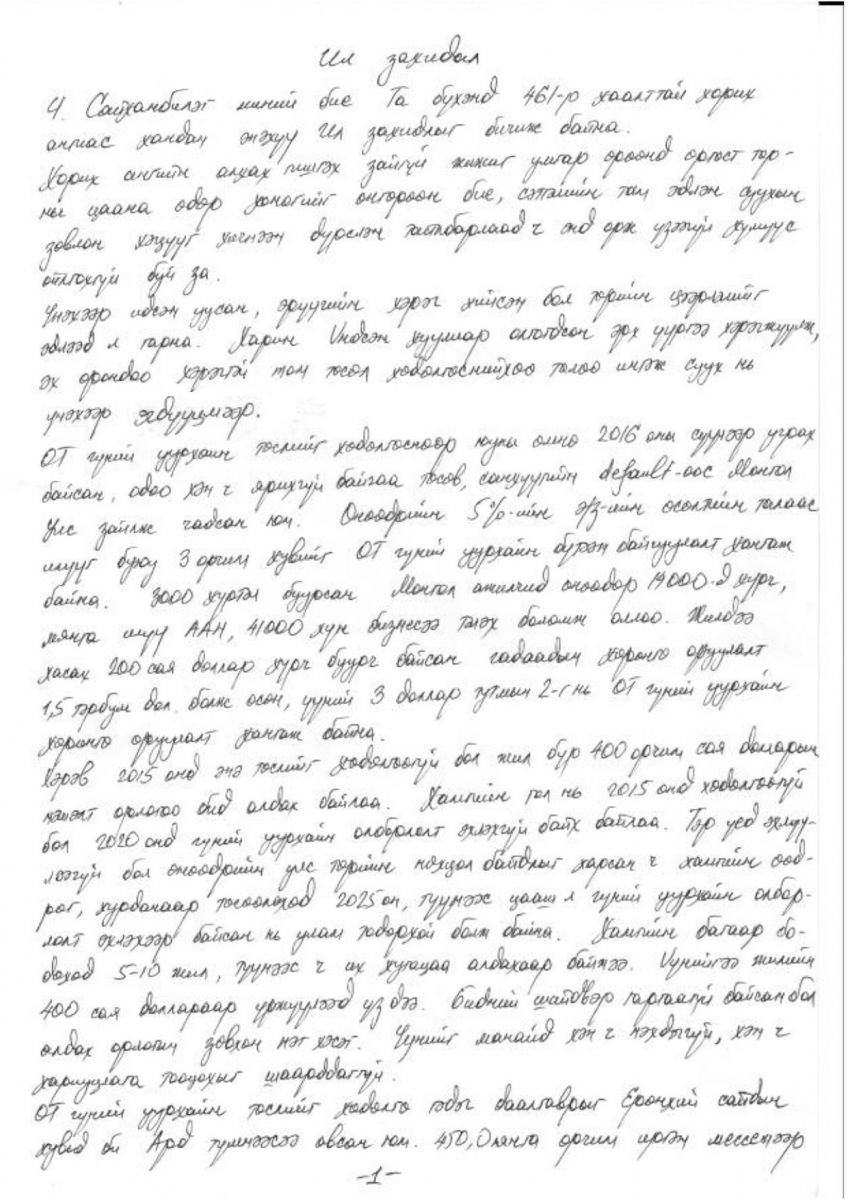 Ил захидал
Ч. Сайханбилэг миний бие Та бүхэнд 461-р хаалттай хорих
ангиас хандан энэхүү Ил захидлыг бичиж байна.
Хорих ангийн алхах гишгэх зайгүй жижиг умгар өрөөнд өргөст тор-
ны цаана өдөр хоногийг өнгөрөөн бие, сэтгэлийн там эдлэн суухын
зовлон хэцүүг хичнээн дүрслэн тайлбарлаад ч энд орж үзээгүй хүмүүс
ойлгохгүй буй за.
Үнэхээр идсэн уусан, эрүүгийн хэрэг хийсэн бол төрийн цээрлэлийг
эдлээд л гарна. Харин Үндсэн хуулиар олгогдсон эрх үүргээ хэрэгжүүлж,
эх орондоо хэрэгтэй том төсөл хөдөлгөснийхөө төлөө ингэж суух нь
үнэхээр эгдүүцмээр.
ОТ гүний уурхайн төслийг хөдөлгөснөөр юуны өмнө 2016 оны сүүлээр учрах
байсан, одоо хэн ч ярихгүй байгаа төсөв, санхүүгийн default-оос Монгол
Улс зайлж чадсан юм. Өнөөдрийн 5%-ийн эдз-ийн өсөлтийн талаас
илүүг буюу 3 орчим хувийг ОТ гүний уурхайн бүтээн байгуулалт хангаж
байна. 3000 хүртэл буурсан Монгол ажилчид өнөөдөр 14000-д хүрч,
мянга илүү ААН, 41000 хүн бизнесээ тэлэх боломж оллоо. Жилдээ
хасах 200 сая доллар хүрч буурч байсан гадаадын хөрөнгө оруулалт
1,5 тэрбум дол. болж өсөн, үүний 3 доллар тутмын 2-г нь ОТ гүний уурхайн
хөрөнгө оруулалт хангаж байна.
Хэрэв 2015 онд энэ төслийг хөдөлгөөгүй бол жил бүр 400 орчим сая долларын
нэмэлт орлогоо бид алдах байлаа. Хамгийн гол нь 2015 онд хөдөлгөөгүй
бол 2020 онд гүний уурхайн олборлолт эхлэхгүй байх байлаа. Тэр үед эхлүү-
лээгүй бол өнөөдрийн улс төрийн нөхцөл байдлыг харсан ч хамгийн өөд-
рөг, хурдацаар төсөөлөхөд 2025 он, түүнээс цааш л гүний уурхайн олбор-
лолт эхлэхээр байсан нь улам тодорхой болж байна. Хамгийн багаар бо-
доход 5-10 жил, түүнээс ч их хугацаа алдахаар байжээ. Үүнийгээ жилийн
400 сая доллараар үржүүлээд үз дээ. Бидний шийдвэр гаргаагүй байсан бол
алдах орлогын зөвхөн нэг хэсэг. Үүнийг манайд хэн ч нэхдэггүй, хэн ч
хариуцлага тооцохыг шаарддаггүй.
ОТ гүний уурхайн төслийг хөдөлгө гэдэг даалгаврыг Ерөнхий сайдын
хувьд би Ард түмнээсээ авсан юм. 450,0 мянга орчим иргэн мессежээр
-1-